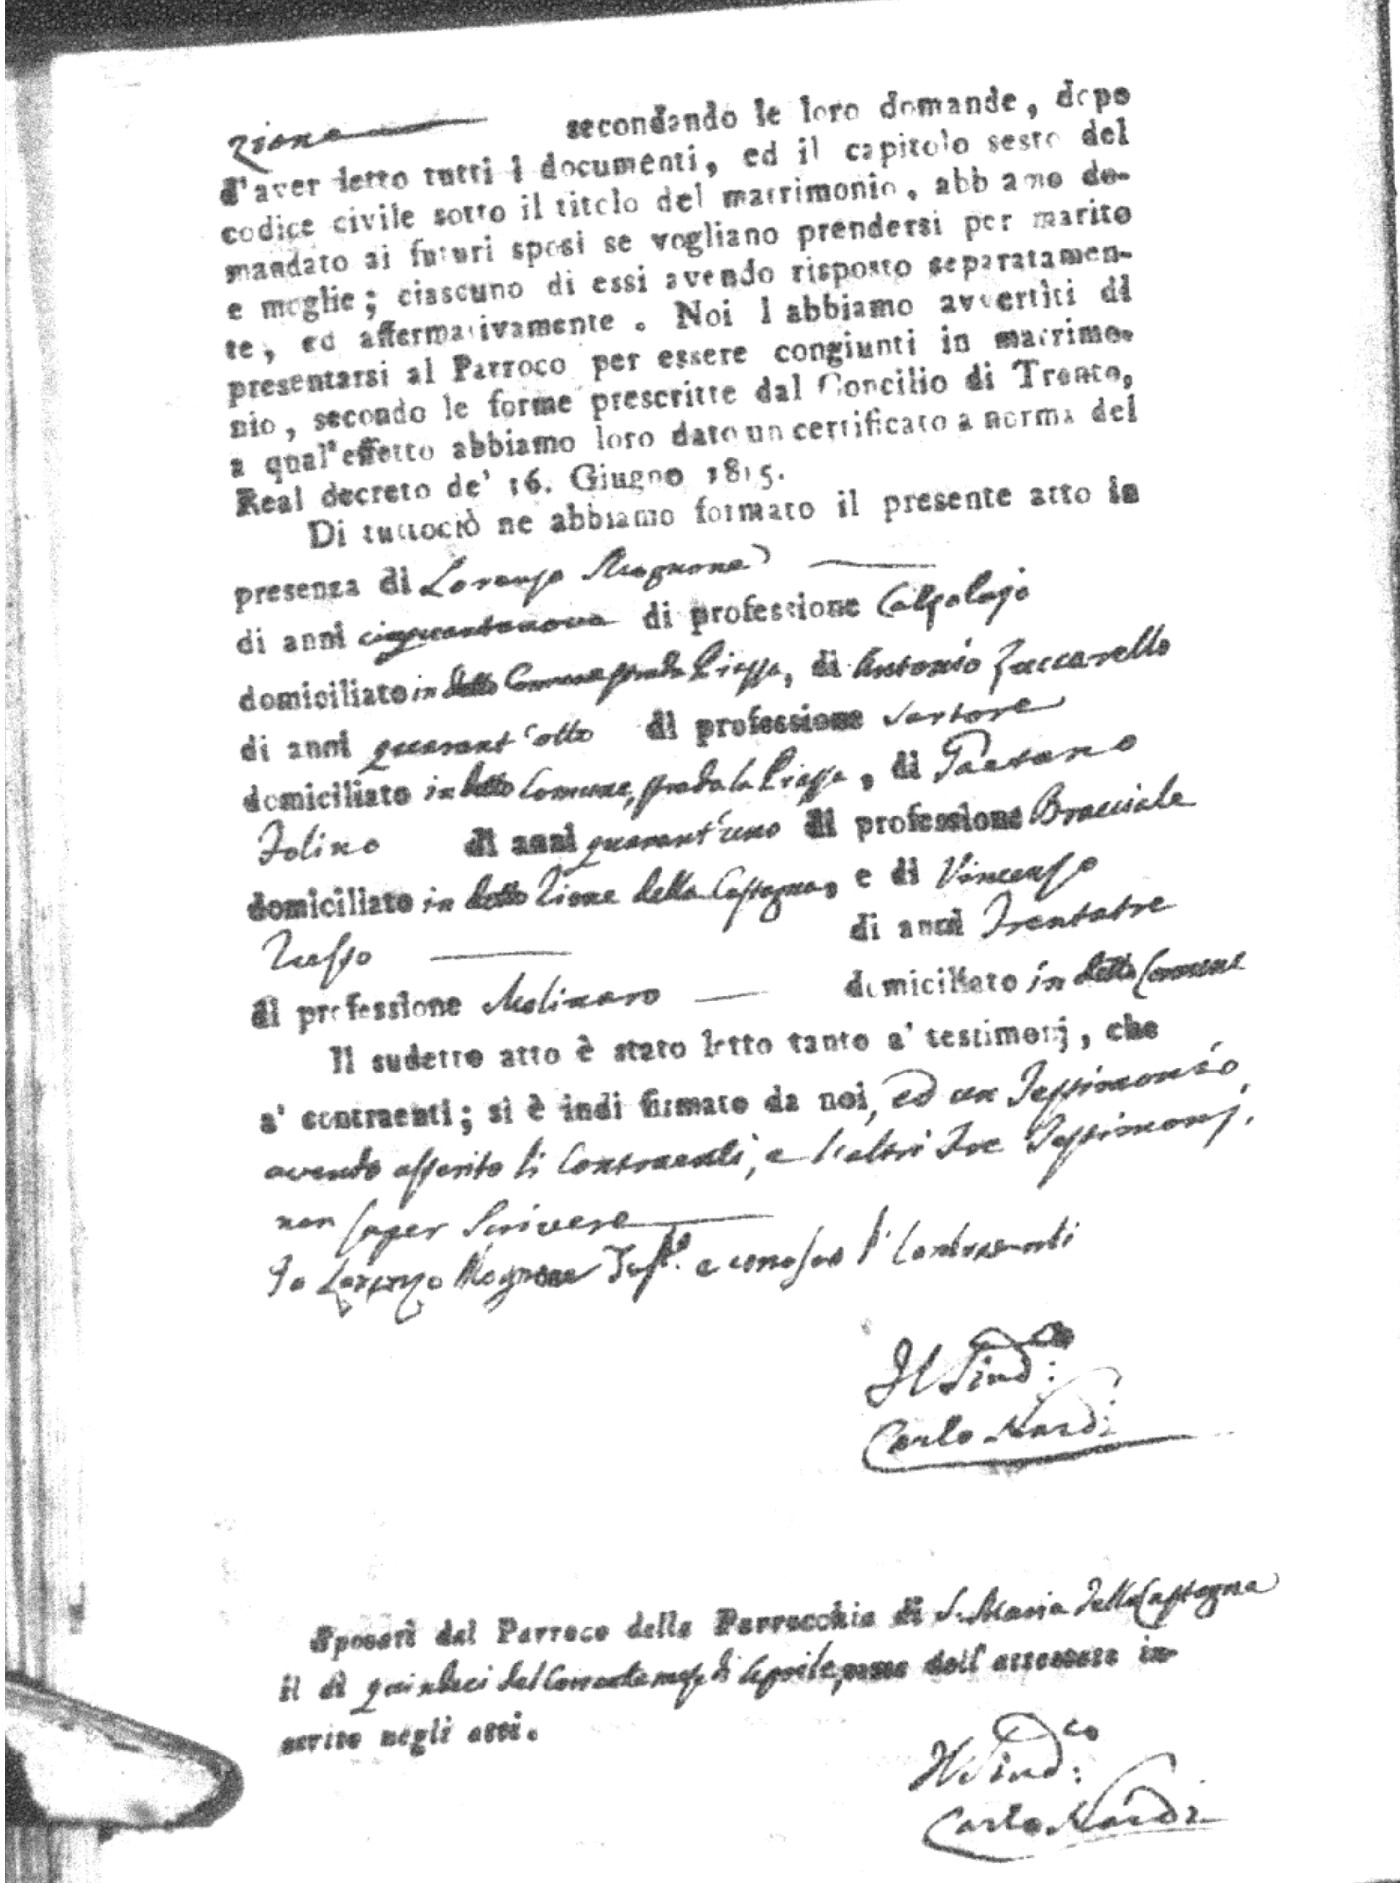 zione secondando le loro domande, dopo
d'aver letto tutti i documenti, ed il capitolo sesto del
codice civile sotto il titolo del matrimonio, abbiamo do-
mandato ai futuri sposi se vogliano prendersi per marito
e moglie; ciascuno di essi avendo risposto separatamen-
te, ed affermativamente. Noi l abbiamo avvertiti di
presentarsi al Parroco per essere congiunti in matrimo-
nio, secondo le forme prescritte dal Concilio di Trento,
a qual'effetto abbiamo loro dato un certificato a norma del
Real decreto de' 16. Giugno 1815.
Di tuttociò ne abbiamo formato il presente atto in
presenza di Lorenzo Mognone
di anni cinquantanove di professione Calzolajo
domiciliato in detto Comune strada Piazza, di Antonio Zuccarello
di anni quarant'otto di professione Sartore
domiciliato in detto Comune, strada la Piazza, di Gaetano
Folino di anni quarant'uno di professione Bracciale
domiciliato in detto Rione della Castagna, e di Vincenzo
Russo di anni Trentatre
di professione Molinaro domiciliato in detto Comune
Il sudetto atto è stato letto tanto a' testimonj, che
a' contraenti; si è indi firmato da noi, ed un Testimonio,
avendo asserito li Contraenti, e l'altri Tre Testimonj,
non saper Scrivere
Io Lorenzo Mognone Test.º e conosco li Contraenti
Il Sind.co
Carlo Nardi
Sposati dal Parroco della Parrocchia di S. Maria della Castagna
il dì quindeci del Corrente mese di Aprile, come dall' attestato in-
serito negli atti.
Il Sind.co
Carlo Nardi